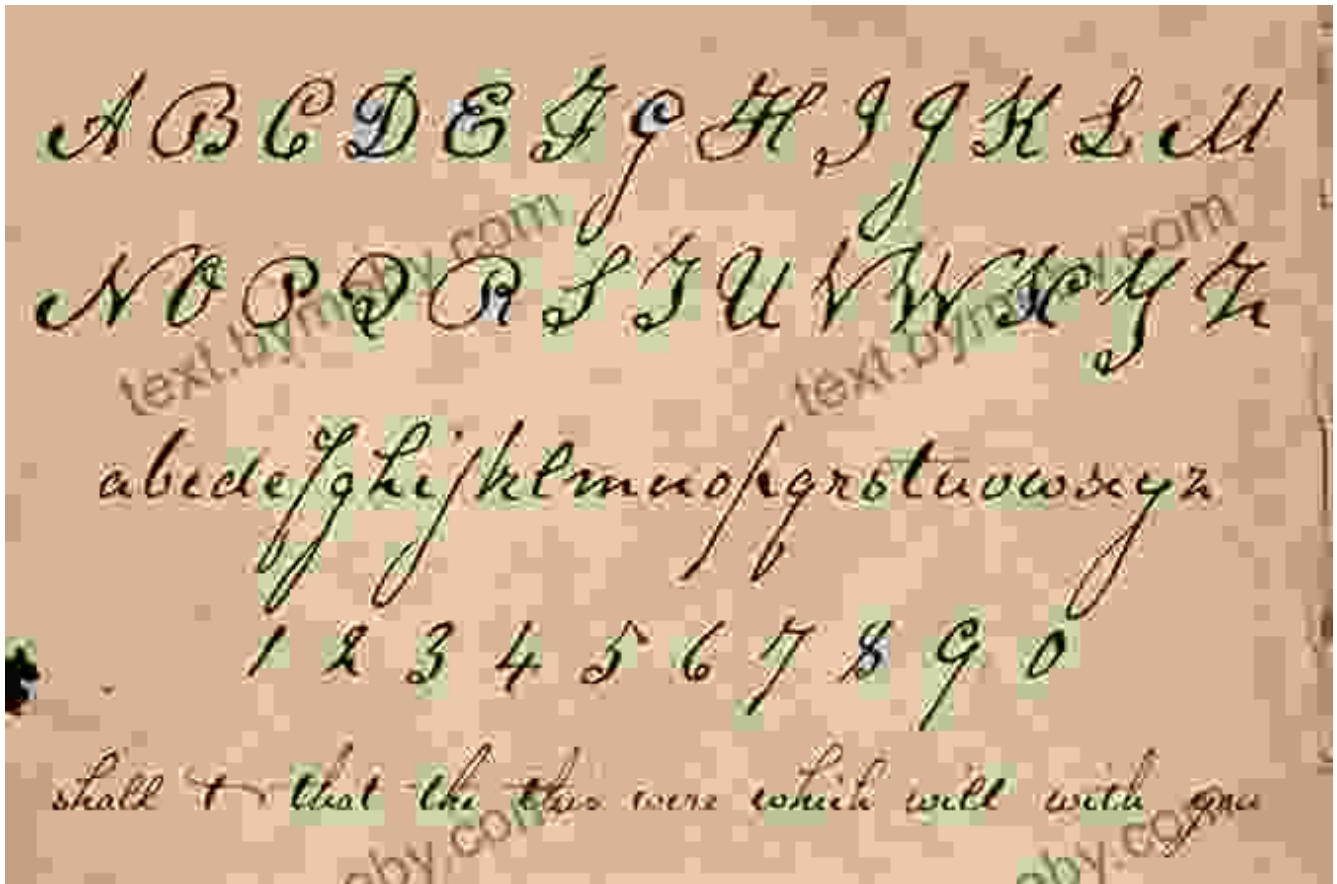 A B C D E F G H I J K L M
N O P Q R S T U V W X Y Z
abcdefghijklmnopqrstuvwxyz
1 2 3 4 5 6 7 8 9 0
shall that the this were which will with you
text.bymoby.com
text.bymoby.com
oby.com
oby.com